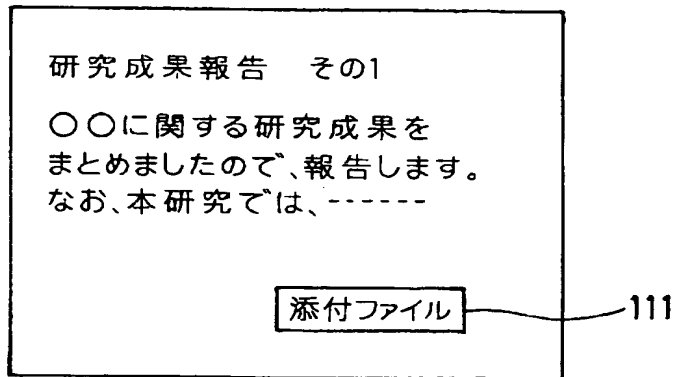 研究成果報告 その1
〇〇に関する研究成果を
まとめましたので、報告します。
なお、本研究では、------
添付ファイル
111